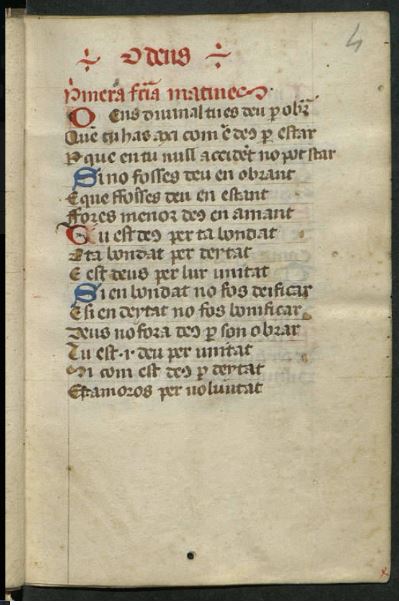 4
÷ O deus ÷
Primera feria matines
O Deus divinal tu es deu per obrar
Que tu has axi com es deus per estar
Perque en tu null accident no pot star
Si no fosses deu en obrant
E que ffosses deu en estant
Ffores menor deus en amant
Tu est deus per ta bondat
E ta bondat per deytat
E est deus per lur unitat
Si en bondat no fos deificar
E si en deytat no fos bonificar
Deus no fora deus per son obrar
Tu est .i. deu per unitat
Si com est deus per deytat
Est amoros per voluntat